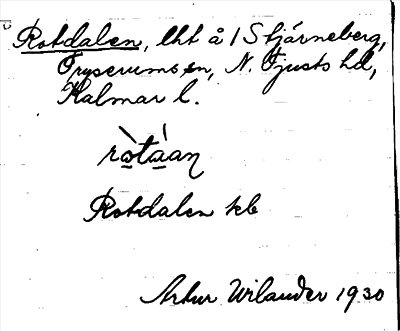 Rotdalen, lht å 1 Stjärneberg,
Tryserums sn, N. Tjusts hd,
Kalmar l.
ròtáan
Rotdalen kb
Artur Wilander 1930